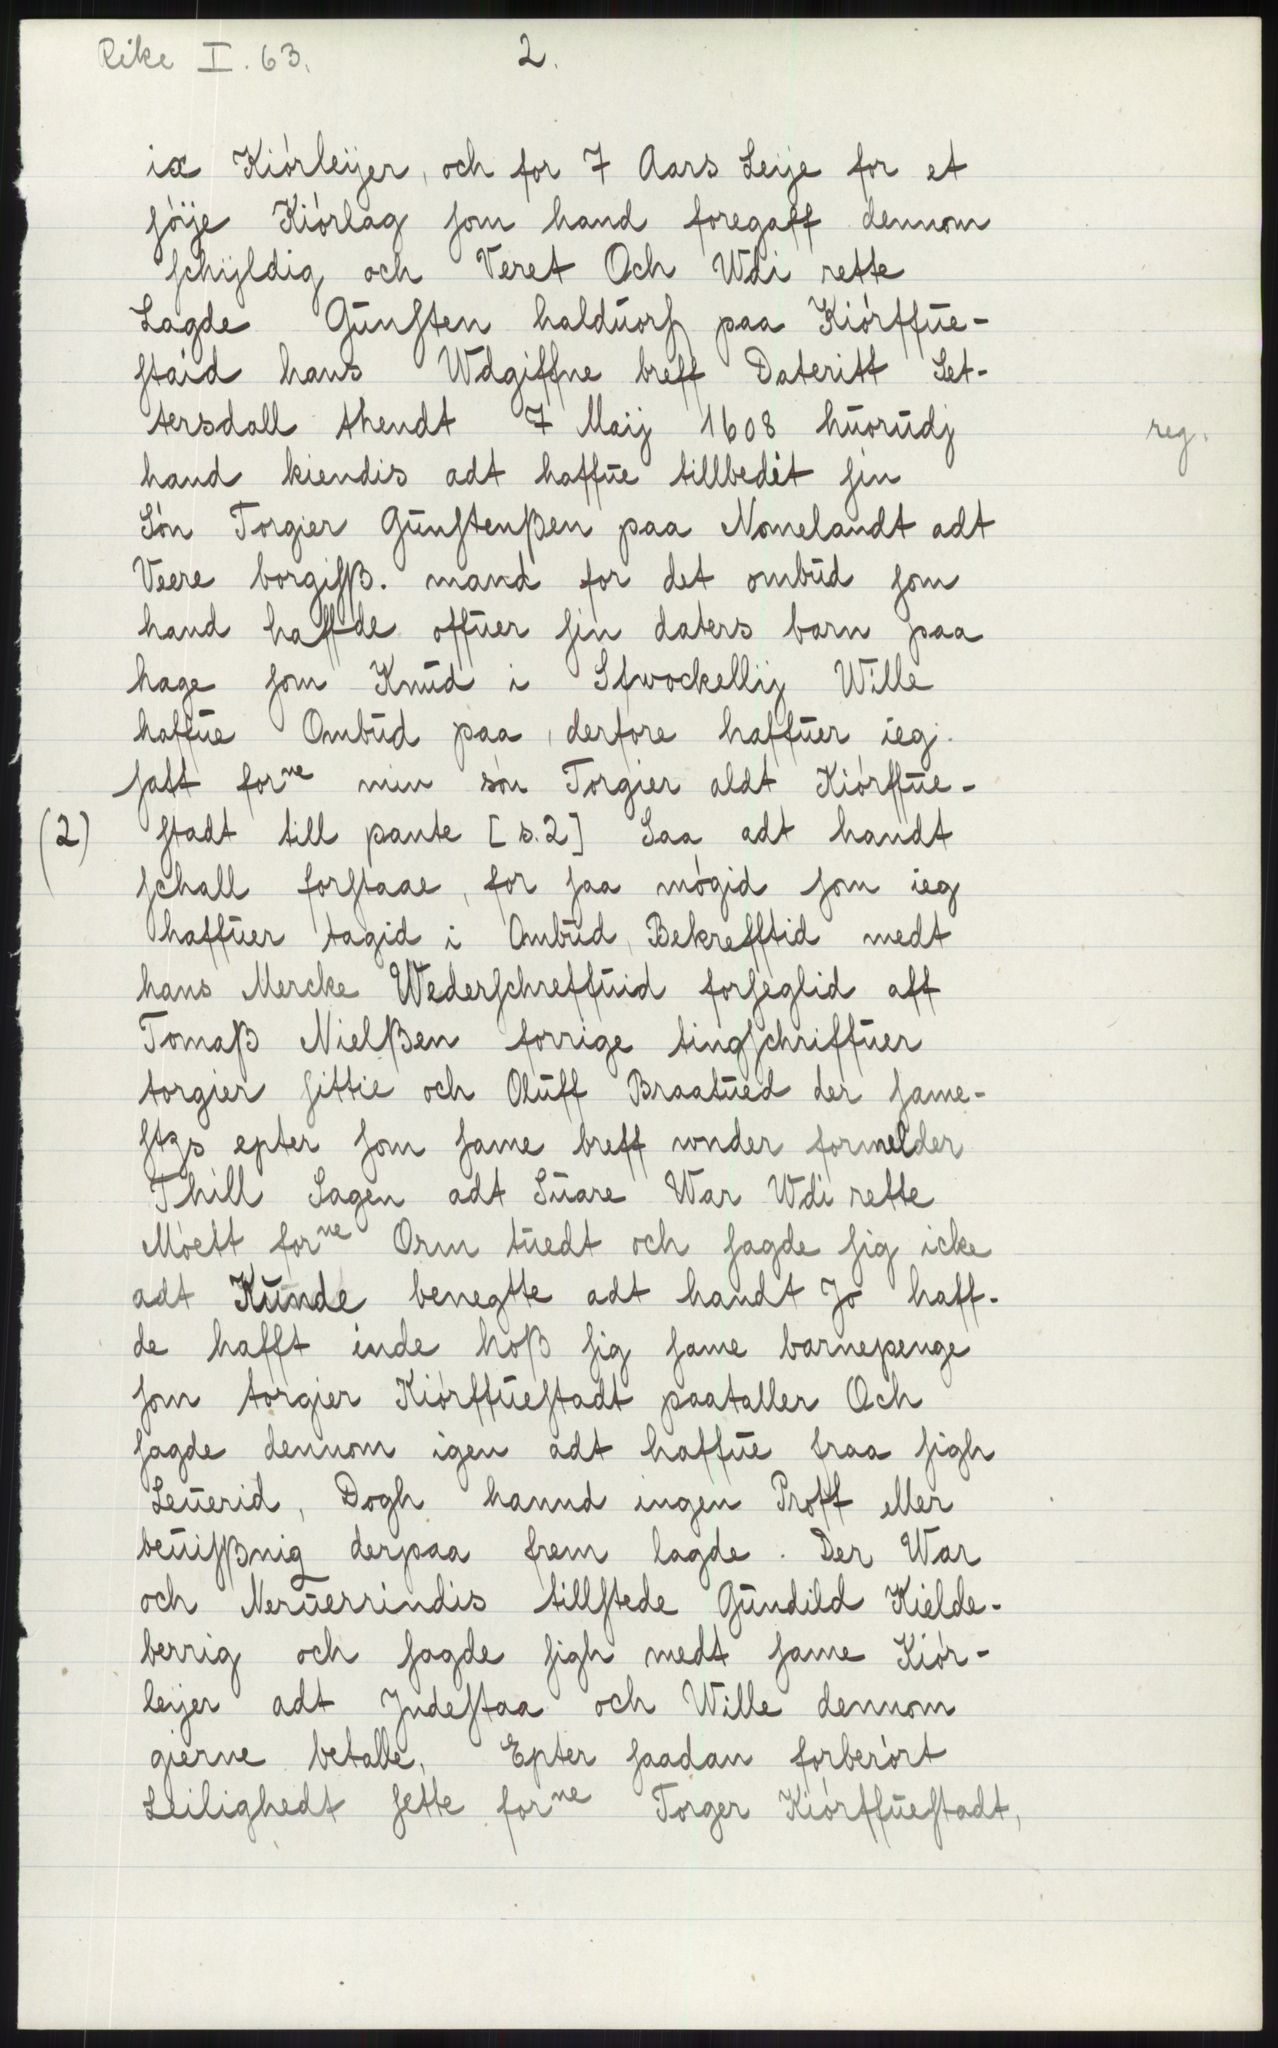 Rike I. 63.
2.
ix Kiórleijer, och for 7 Aars Leije for et
sóije Kiórlag som hand foregaff dennom
schijldig och Veret Och Wdi rette
Lagde Gūnsten haldūors paa Kiórffūe-
stáid hans Wdgiffne breff Dateritt Set-
tersdall thendt 7 Maij 1608 hūorūdj
reg.
hand kiendis adt haffūe tillbedit sin
Són Torgier Gūnstenßen paa Nomelandt adt
Veere borgisß. mand for det ombūd som
hand haffde offūer sin daters barn paa
hage som Knūd i Stwockellij Wille
haffūe Ombūd paa, derfore haffūer ieg
satt forne min són Torgier aldt Kiórffūe-
(2) stadt till pante [s.2] Saa adt handt
schall forstaae, for saa mógid som ieg
haffūer tagid i Ombūd, Bekrefftid medt
hans Mercke Wederschreffūid forseglid aff
Tomaß Nielßen forrige tingschriffūer
torgier sittie och Olūff Braatūed der same-
stzs epter som same breff wnder formelder
Thill Sagen adt Sūare War Wdi rette
Móett forne Orm tūedt och sagde sig icke
adt Kūnde benegtte adt handt Jo haff-
de hafft inde hoß sig same barnepenge
som torgier Kiórffūestadt paataller Och
sagde dennom igen adt haffūe fraa sigh
Leūerid, Dogh hannd ingen Proff eller
beūisßnig derpaa frem lagde. Der War
och Nerūerrindis tillstede Gūndild Kielde-
berrig och sagde sigh medt same Kiór-
leijer adt Jndestaa och Wille dennom
gierne betalle. Epter saadan forberórt
Leilighedt sette forne Torger Kiórffūestadt,